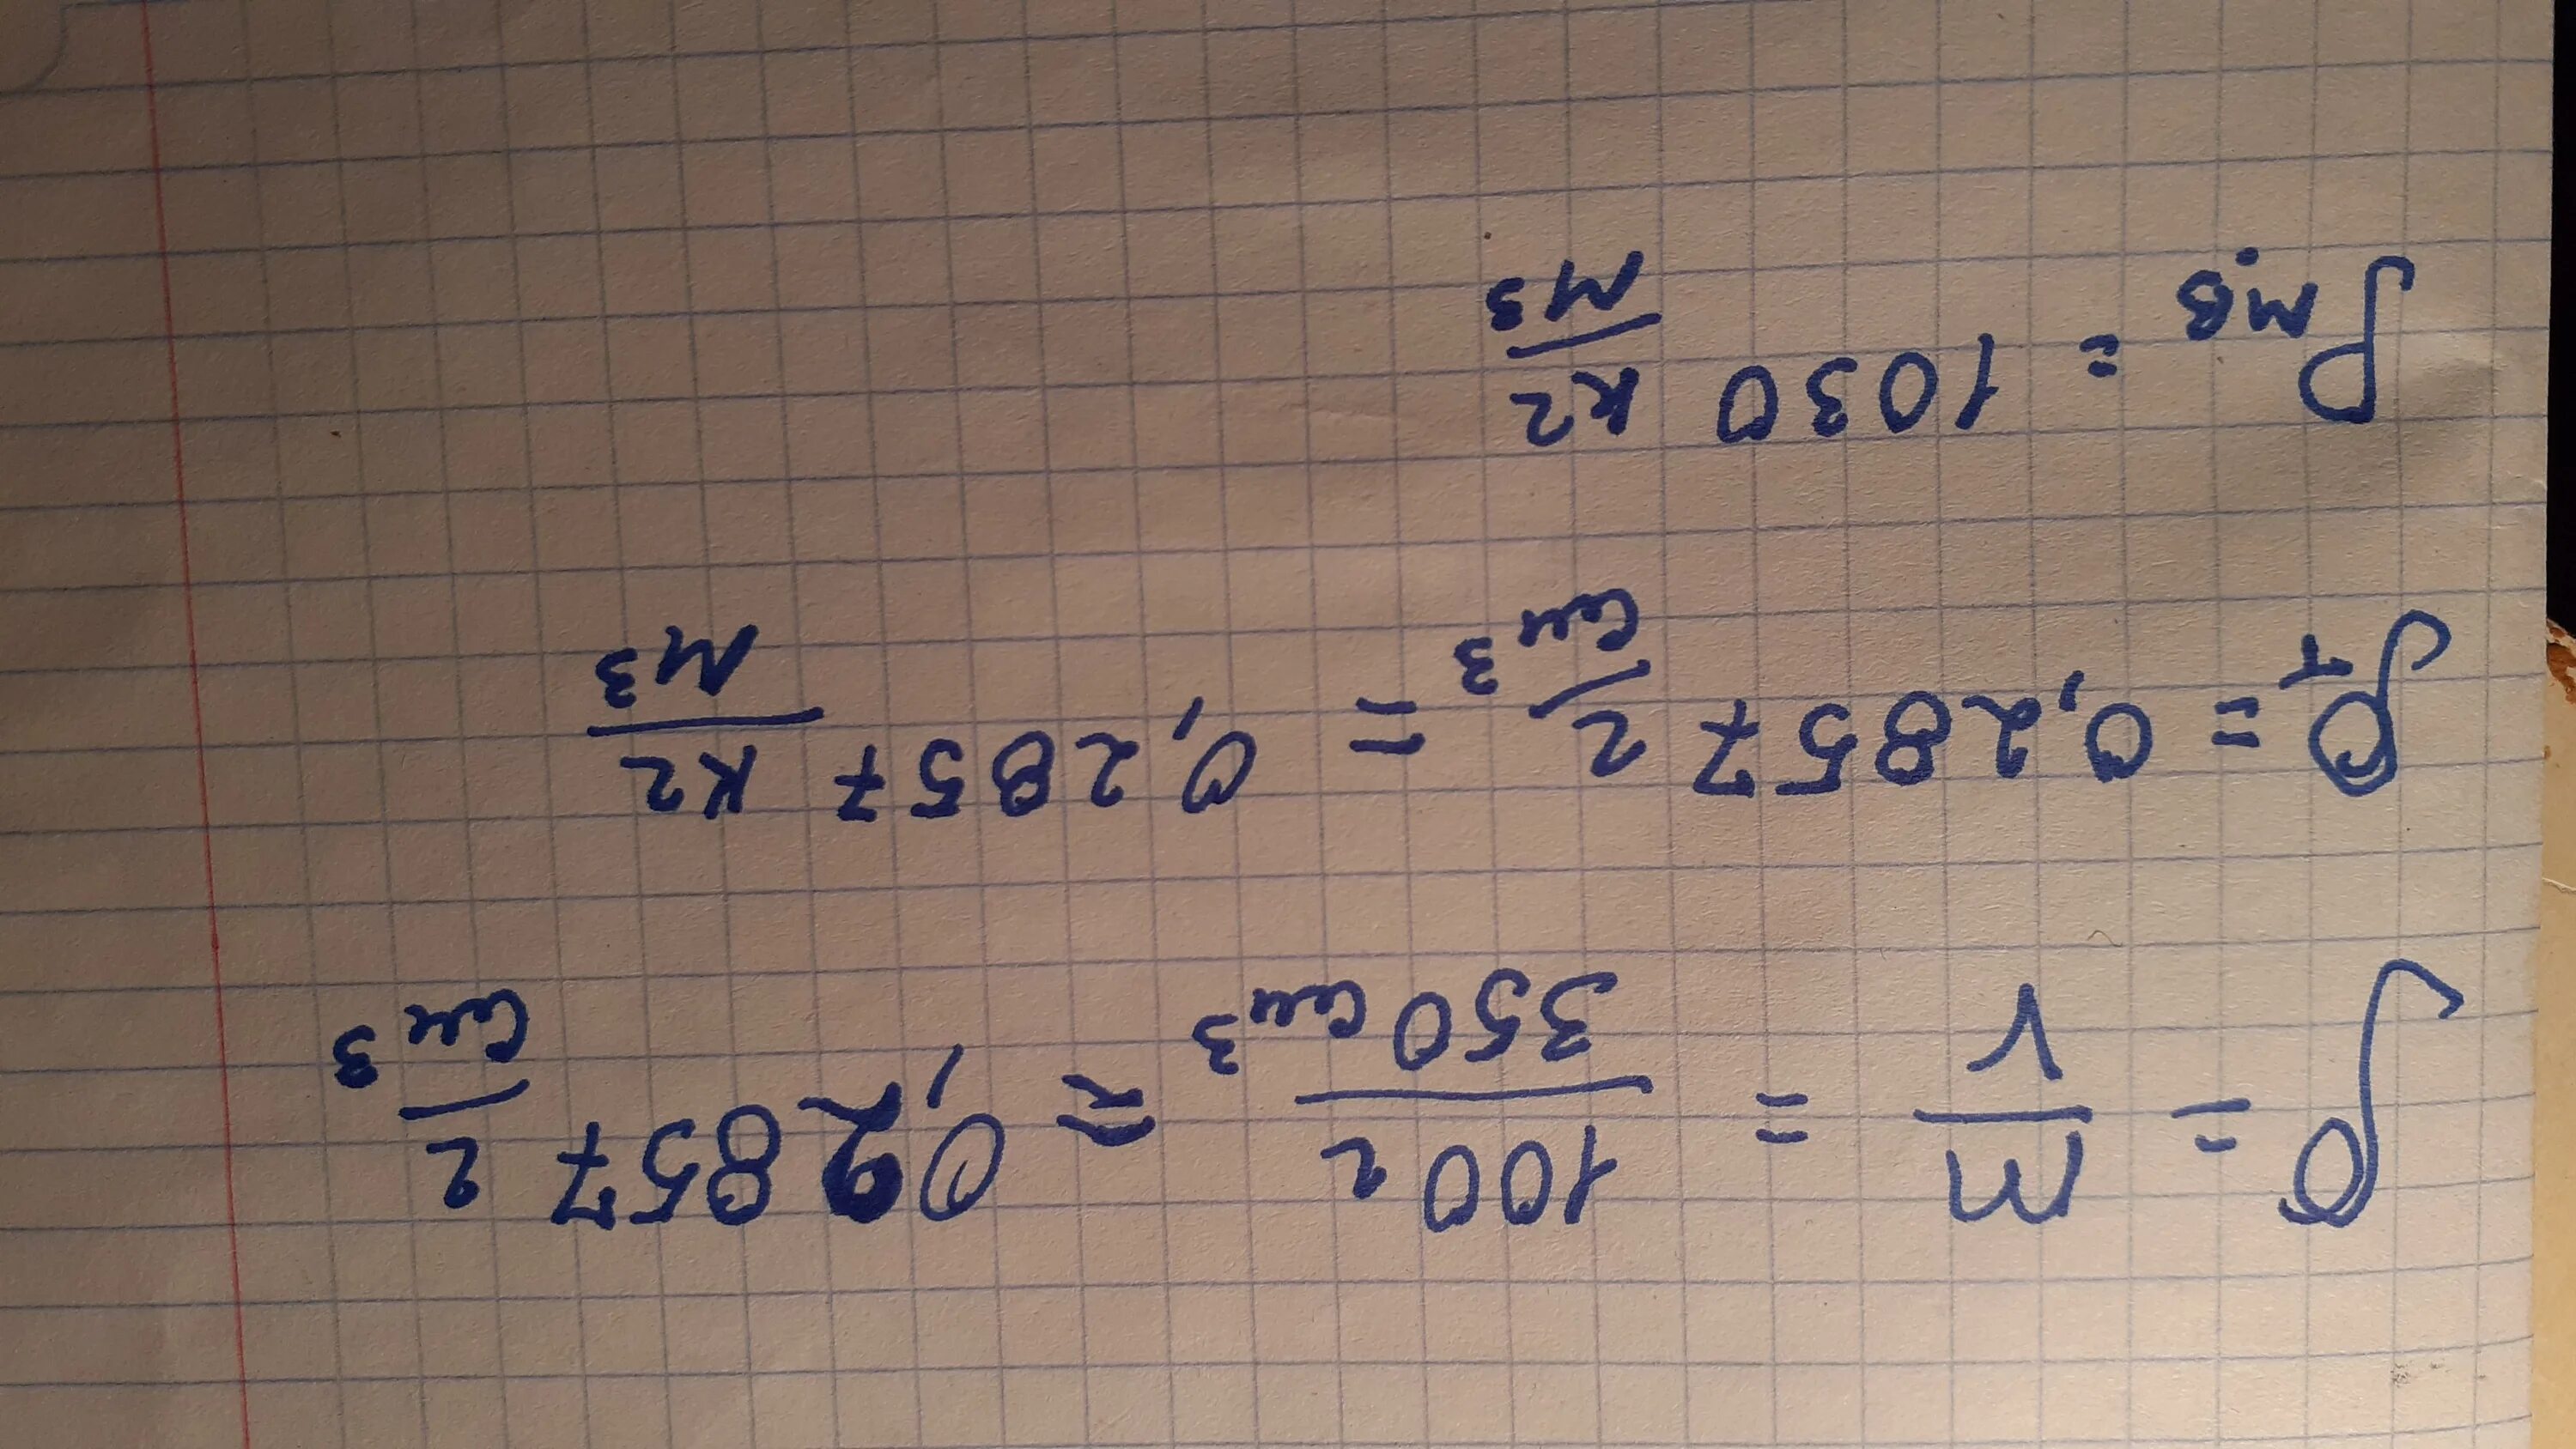 ρ = m/V = 100г/350см³ ≈ 0,2857 г/см³
ρт = 0,2857 г/см³ = 0,2857 кг/м³
ρм.в = 1030 кг/м³